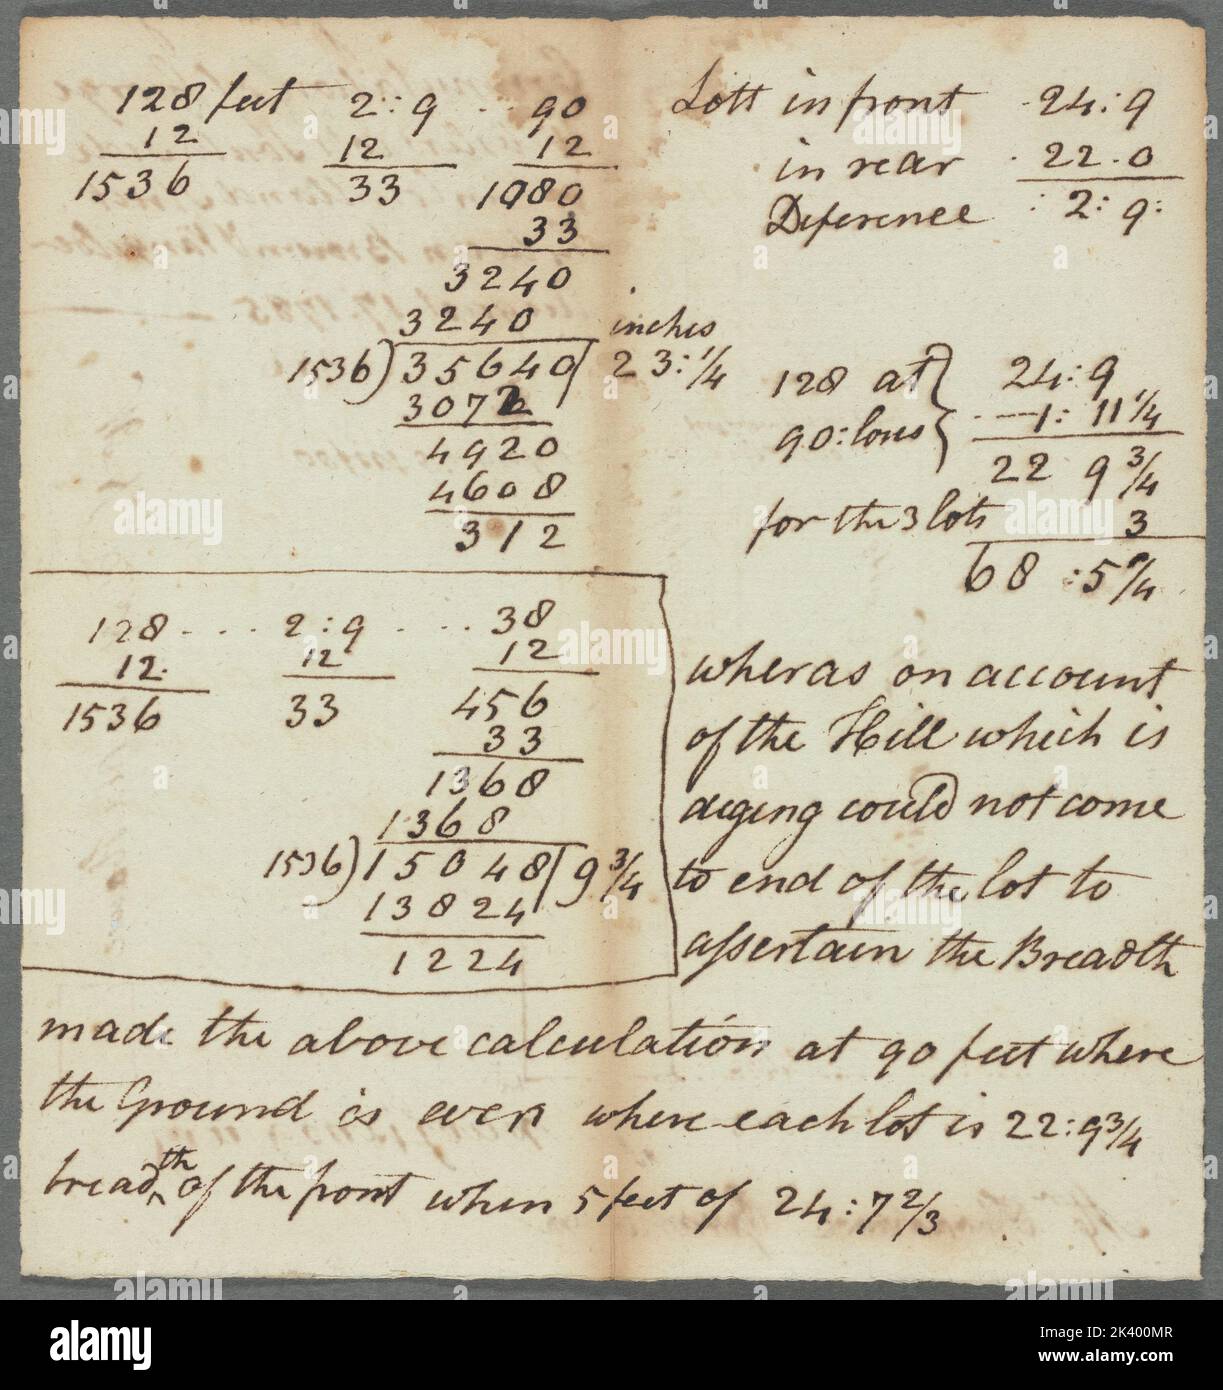 128 feet 2:9 .. 90
12 12 12
1536 33 1080
33
3240
3240 inches
1536)35640( 23:1/4
3072
4920
4608
312
Lott in front 24:9
in rear 22.0
Deference 2:9:
128 at } 24:9
90:lons 1:11 1/4
22 9 3/4
for the 3 lots 3
68 :5 9/4
128 ... 2:9 ... 38
12. 12 12
1536 33 456
33
1368
1368
1536)15048(9 3/4
13824
1224
wheras on account
of the Hill which is
diging could not come
to end of the lot to
assertain the Breadth
made the above calculation at 90 feet where
the Ground is even where each lot is 22:9 3/4
breadth of the front when 5 feet of 24:7 2/3
alamy
Image ID: 2K400MR
www.alamy.com